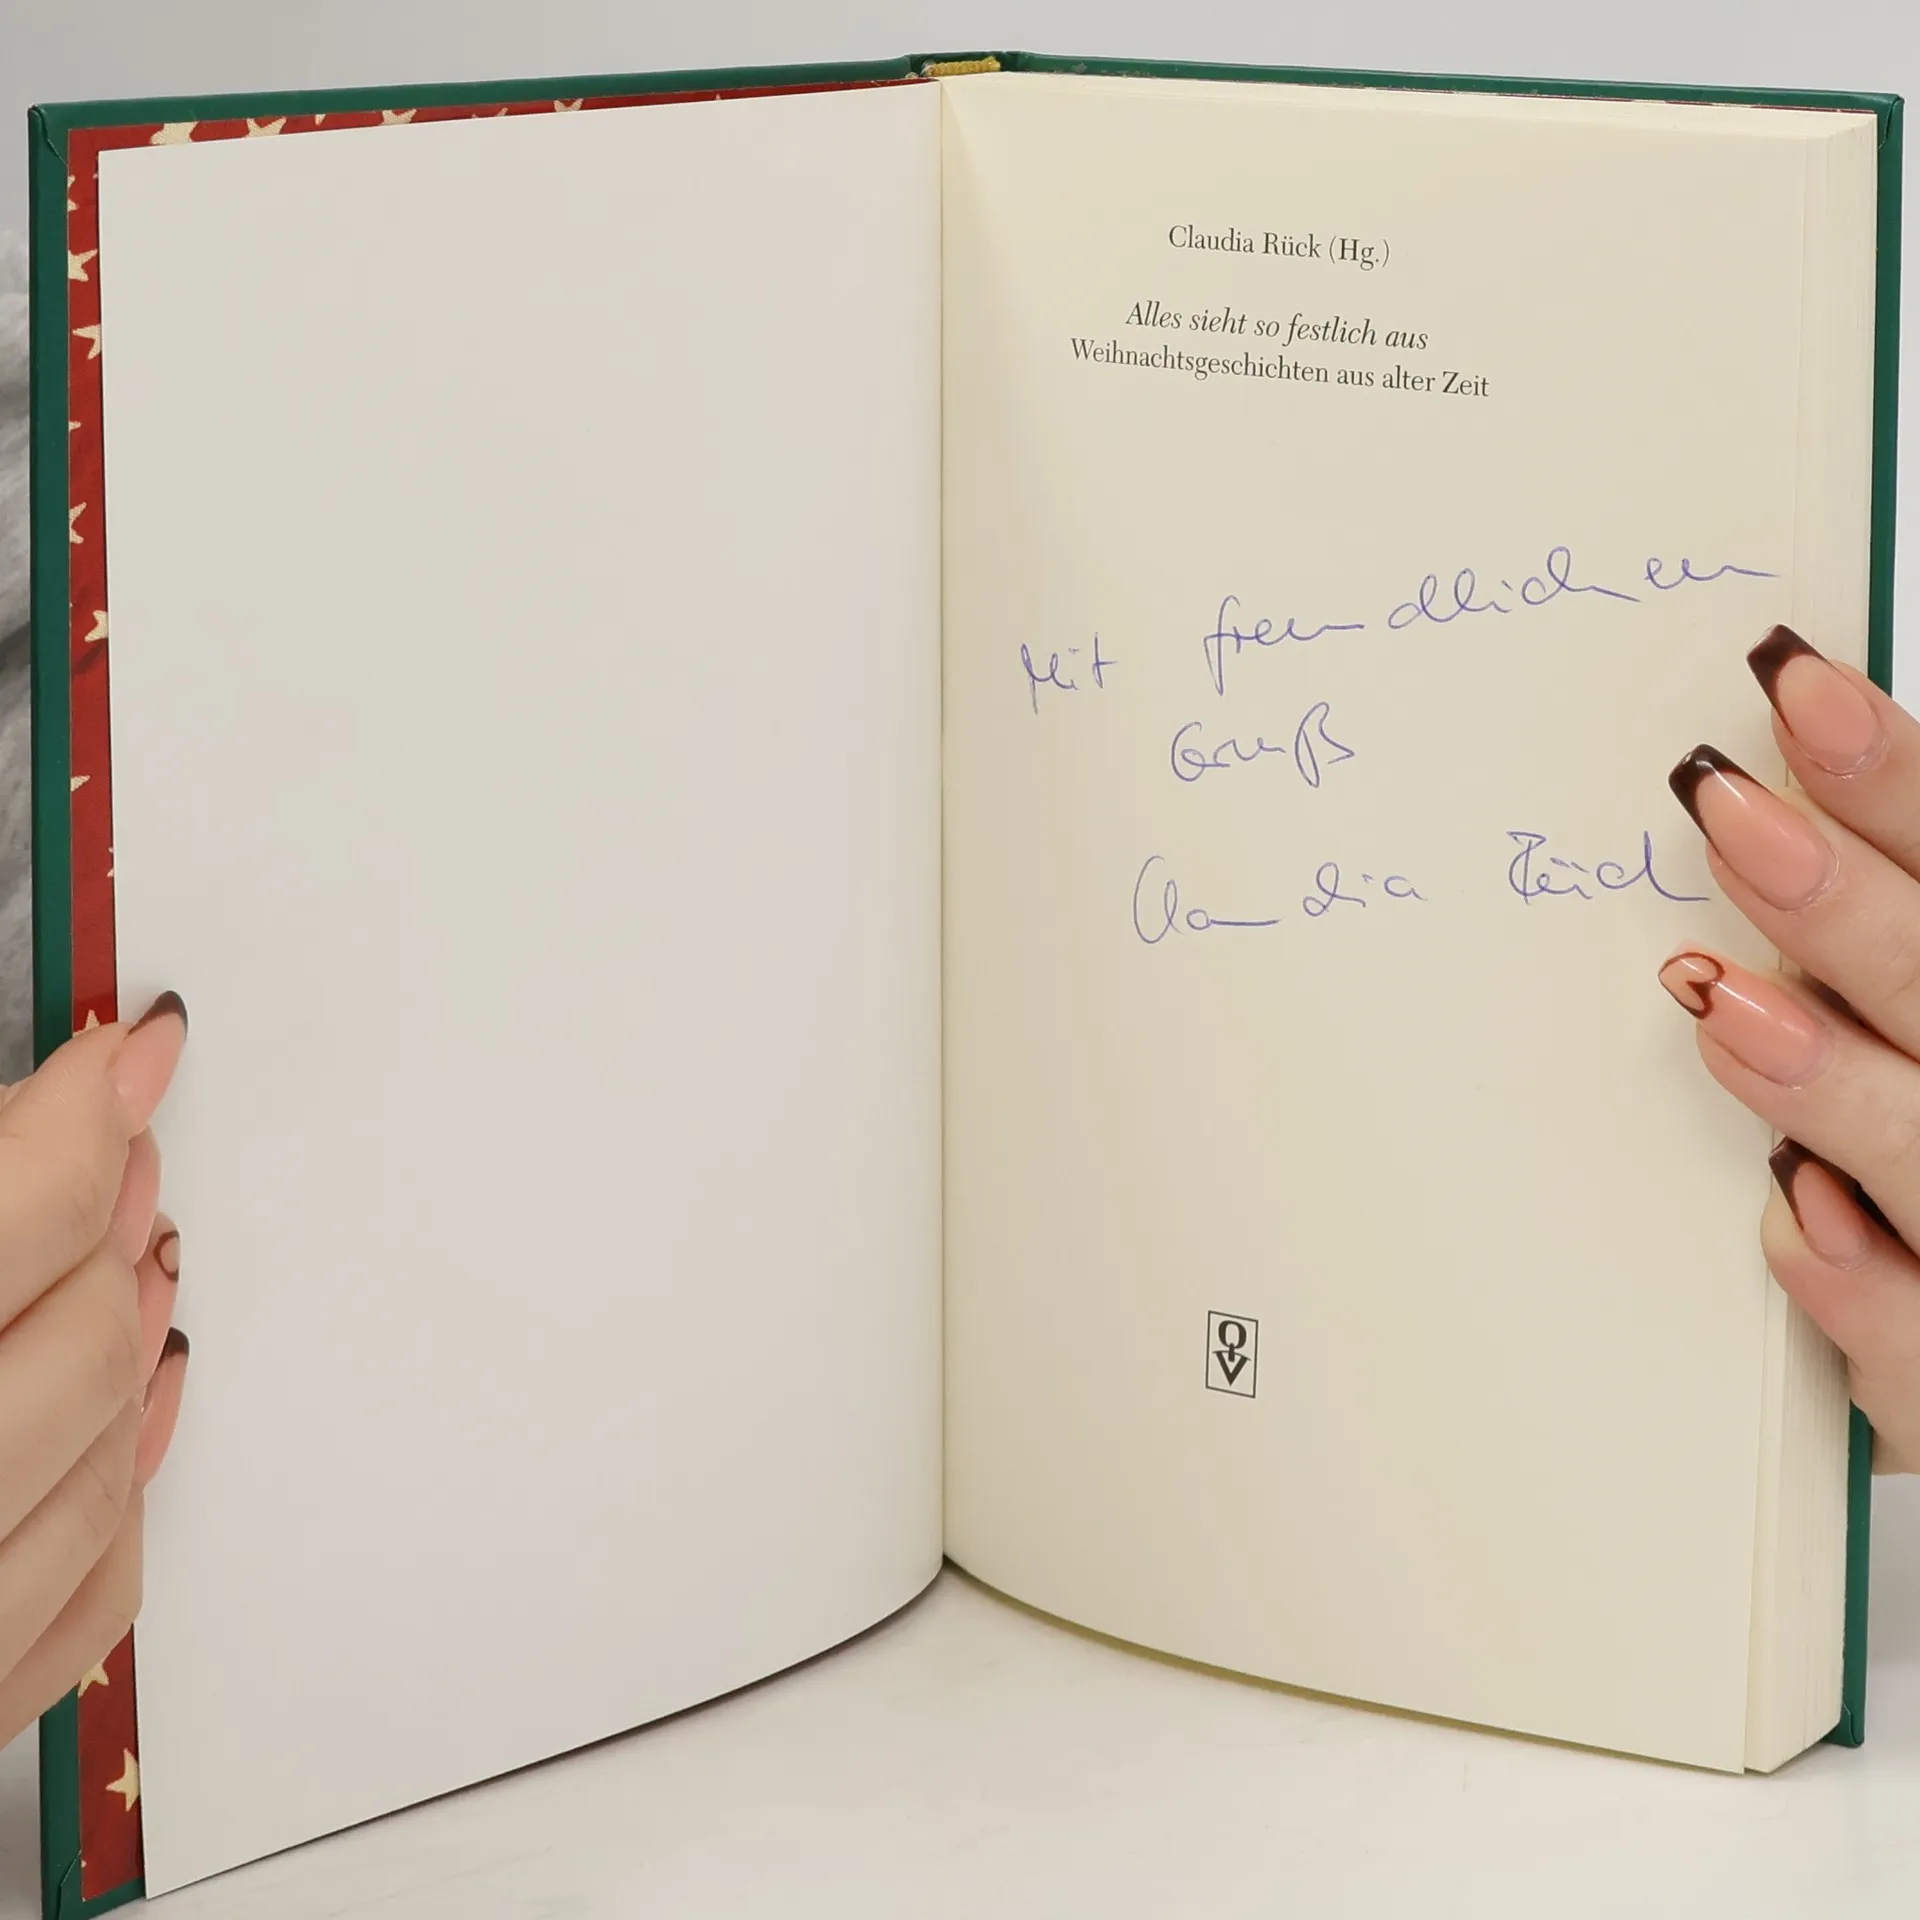 Claudia Rück (Hg.)
Alles sieht so festlich aus
Weihnachtsgeschichten aus alter Zeit
Mit freundlichem
Gruß
Claudia Rück
QV